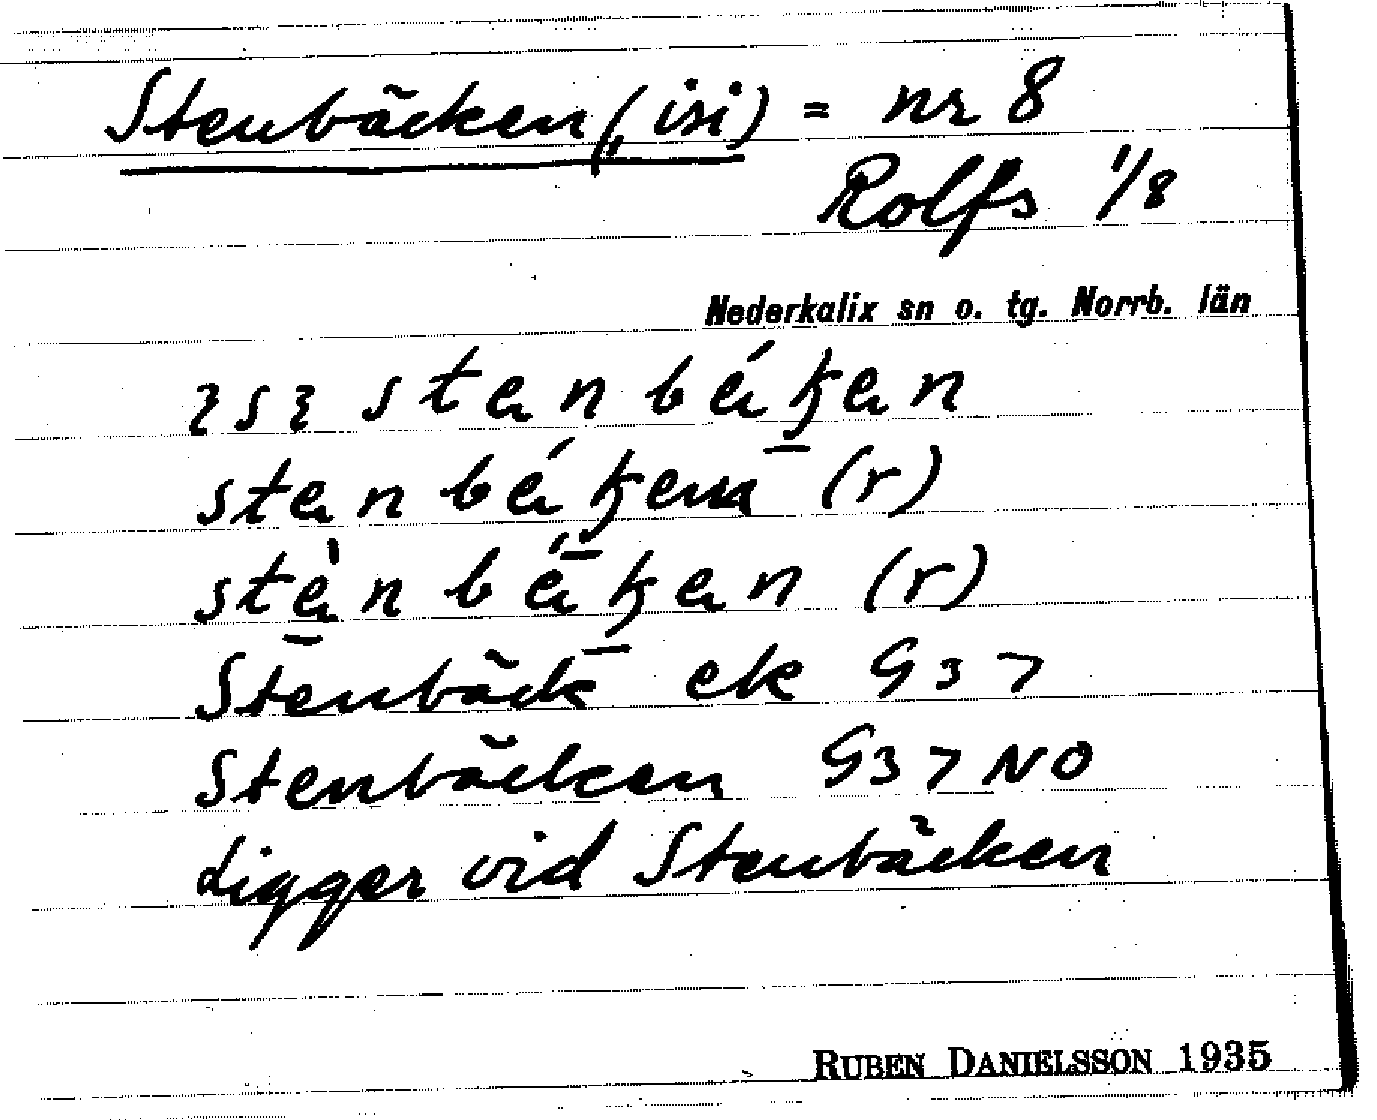 Stenbäcken (, isi) = nr 8
Rolfs 1/8
Nederkalix sn o. tg. Norrb. län
stenbäcken
(r)
(r)
Stenbäck ek G37
Stenbäcken G37NO
Ligger vid Stenbäcken
RUBEN DANIELSSON 1935